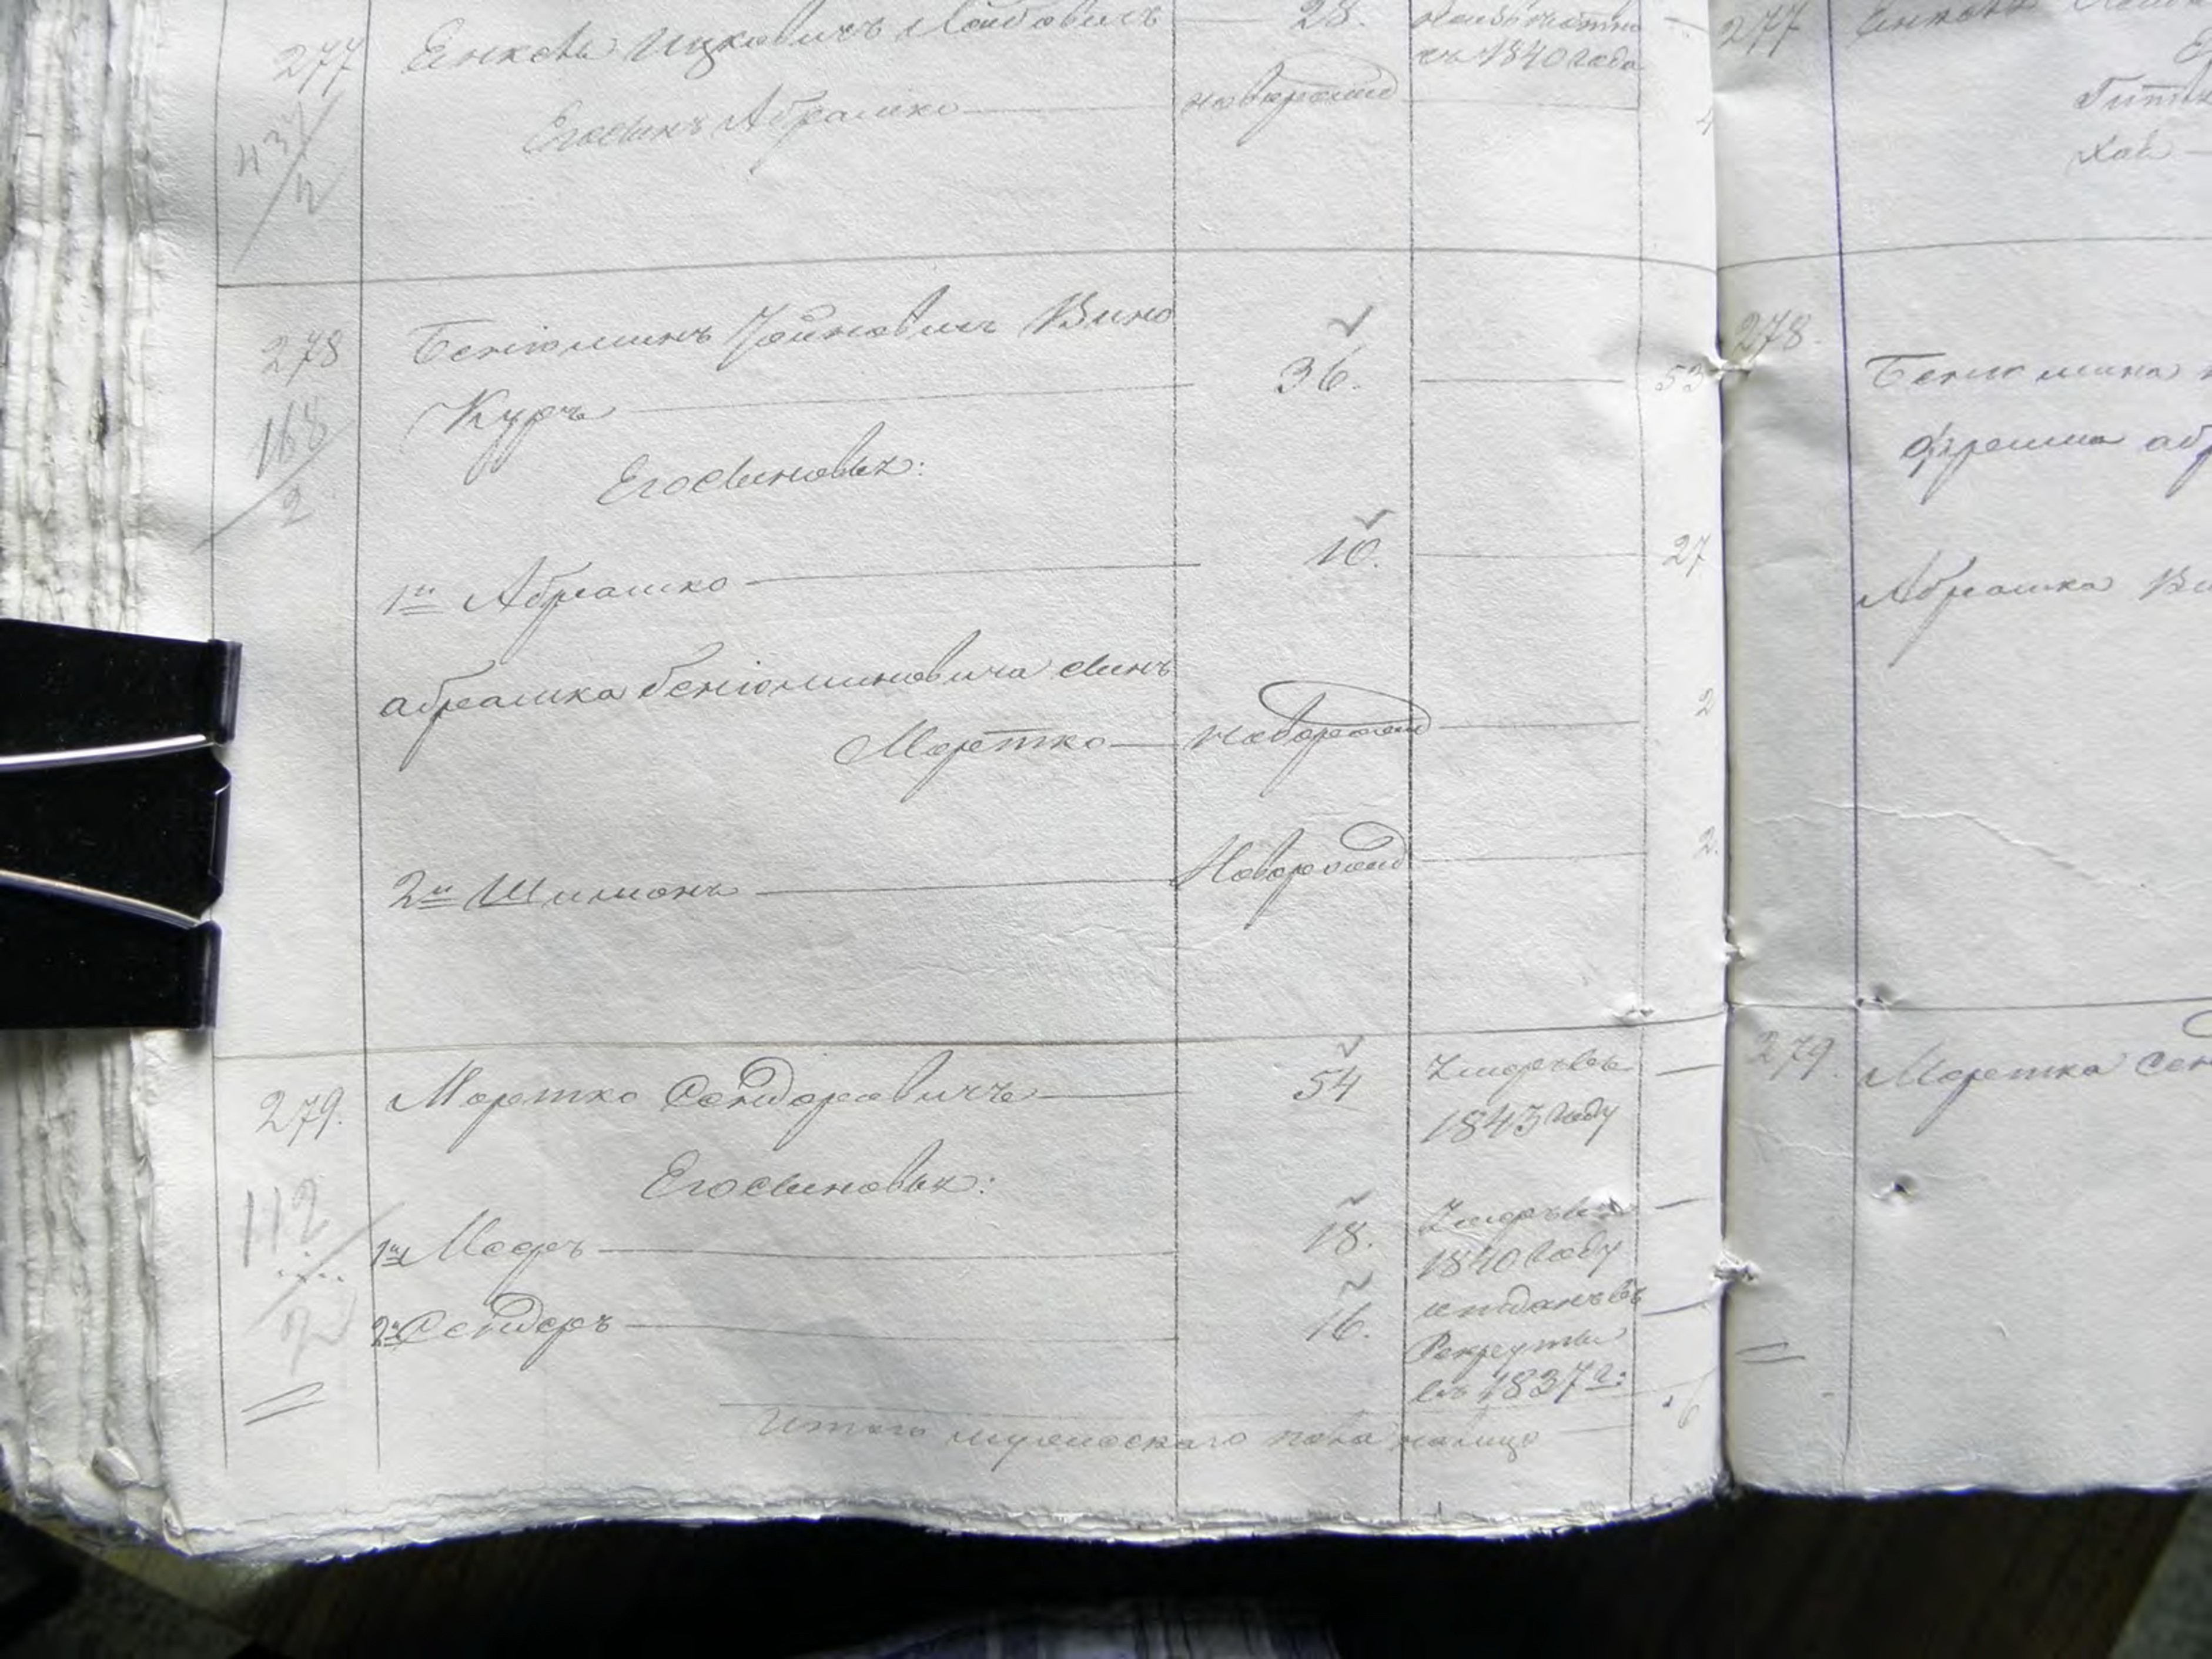 277 Енкель Ицковичъ Лейбовичъ — 28. неизвѣстно
съ 1840 года
Его сынъ Абрашко — новорожд
278 Беніоминъ Хаимовичъ Вино
Куръ — 36. — 53
168/2
Его сыновья:
1й Абрашко — 10. — 27
абрашка беніоминовича сынъ
Мортко — новорожд — 2
2й Шимонъ — Новорожд — 2.
279. Мортко Сендоровичъ — 54 Умеръ въ
1843 году
Его сыновья:
112/2
1й Мееръ — 18. Умеръ въ
1840 году
2й Сендеръ — 16. отданъ въ
Рекруты
въ 1837 г:
Итого мужескаго пола налицо — 6
277
Гит
Хая —
278.
Беніомина
Фрейма
Абрашка
279. Мортка Сен